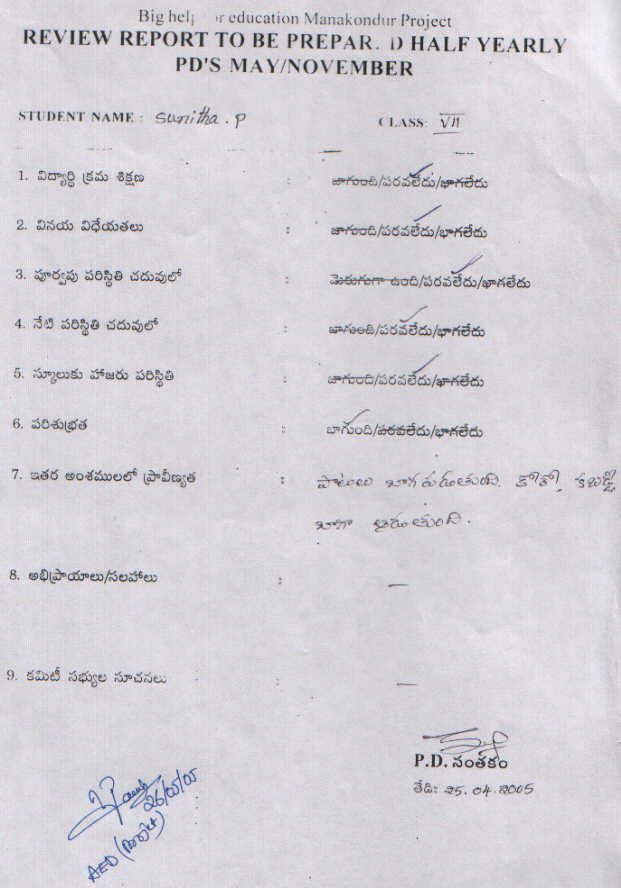 Big help for education Manakondur Project
REVIEW REPORT TO BE PREPARED HALF YEARLY
PD'S MAY/NOVEMBER
STUDENT NAME : Sunitha . P CLASS: VII
1. విద్యార్థి క్రమ శిక్షణ : బాగుంది/పరవలేదు/బాగలేదు
2. వినయ విధేయతలు : బాగుంది/పరవలేదు/బాగలేదు
3. పూర్వపు పరిస్థితి చదువులో : మెరుగుగా ఉంది/పరవలేదు/బాగలేదు
4. నేటి పరిస్థితి చదువులో : బాగుంది/పరవలేదు/బాగలేదు
5. స్కూలుకు హాజరు పరిస్థితి : బాగుంది/పరవలేదు/బాగలేదు
6. పరిశుభ్రత : బాగుంది/పరవలేదు/బాగలేదు
7. ఇతర అంశములలో ప్రావీణ్యత : పాటలు బాగ పాడుతుంది. కోకో, కబడ్డీ
బాగా ఆడుతుంది.
8. అభిప్రాయాలు/సలహాలు : —
9. కమిటీ సభ్యుల సూచనలు : —
P.D. సంతకం
తేది: 25.04.2005
26/05/05
AED (Project)